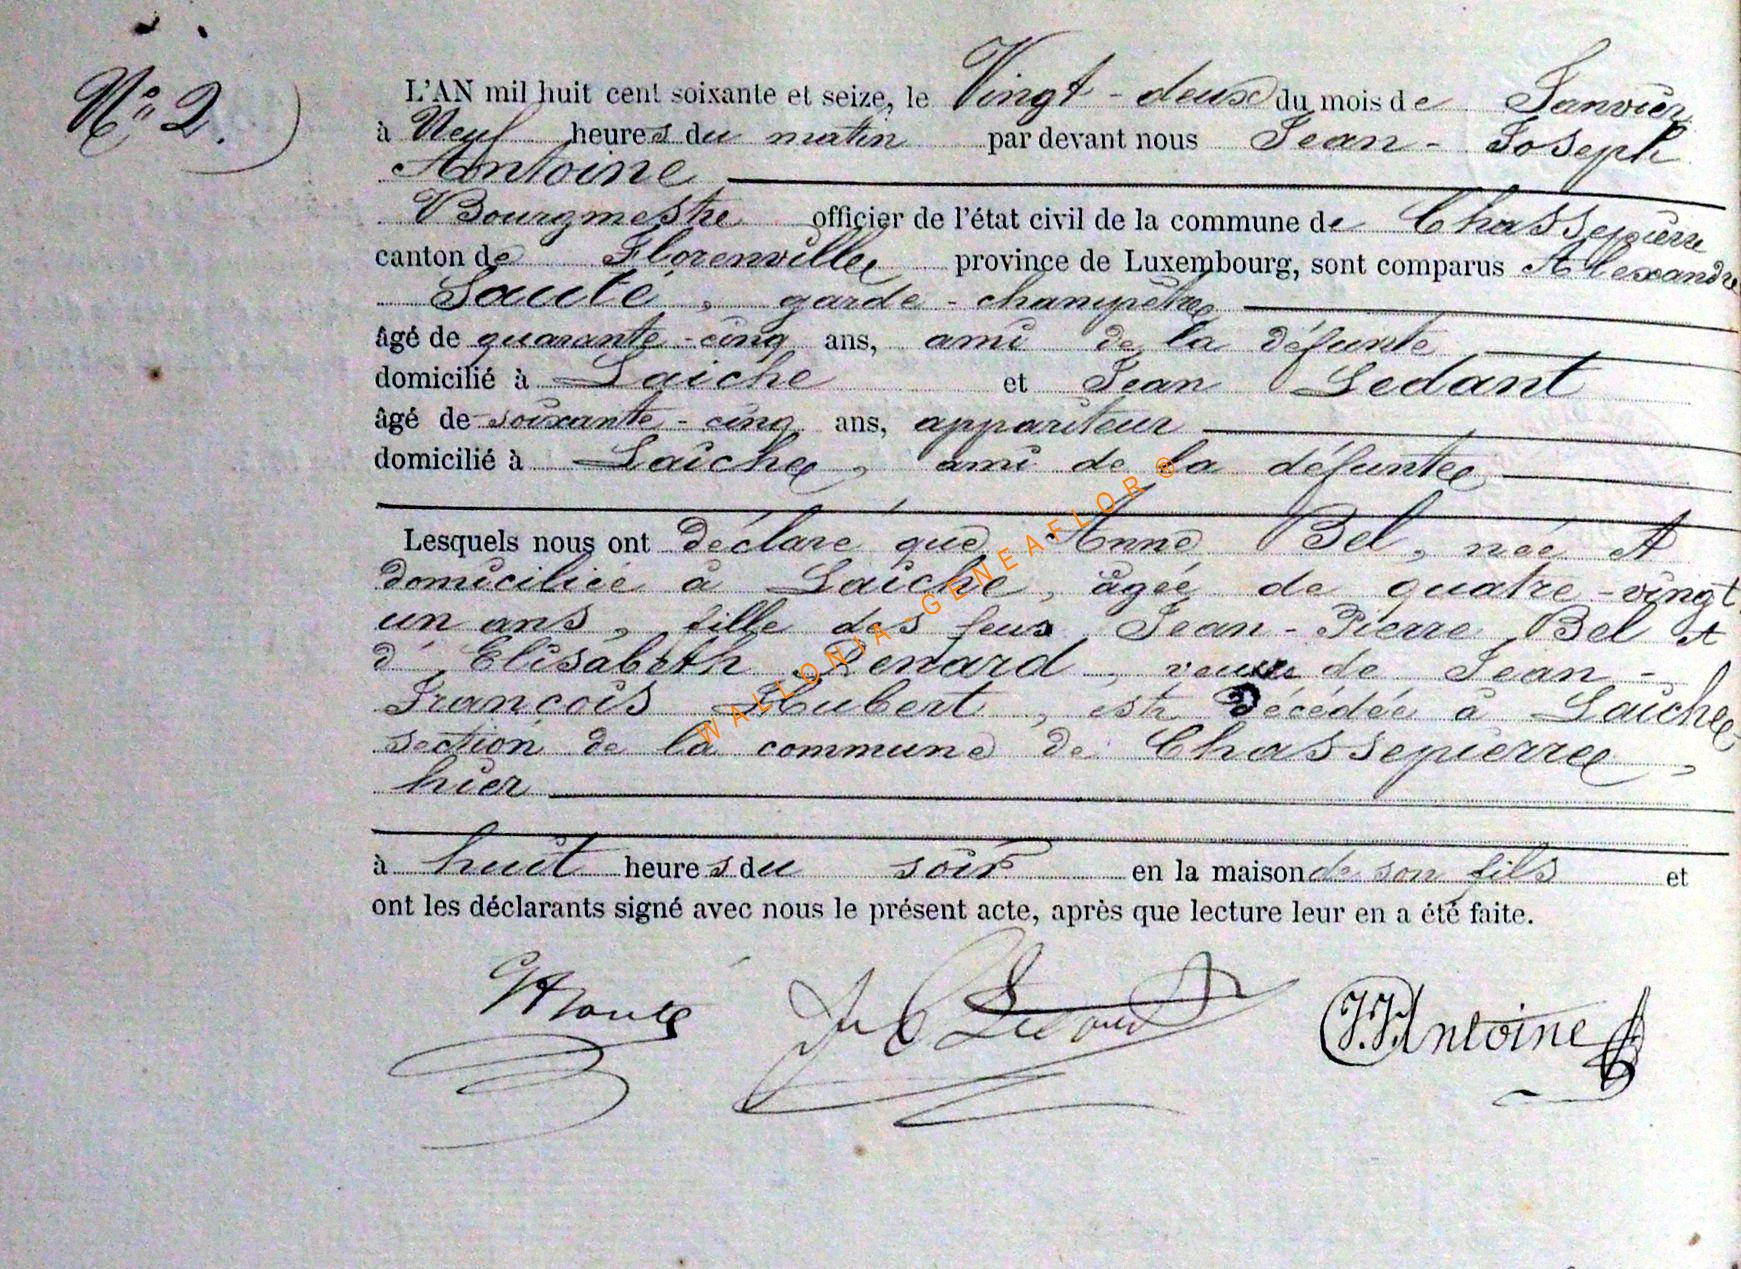 N° 2.
L'AN mil huit cent soixante et seize, le Vingt-deux du mois de Janvier
à Neuf heures du matin par devant nous Jean-Joseph
Antoine
Bourgmestre officier de l'état civil de la commune de Chassepierre
canton de Florenville province de Luxembourg, sont comparus Alexandre
Sauté, garde-champêtre
âgé de quarante-cinq ans, ami de la défunte
domicilié à Laiche et Jean Ledant
âgé de soixante-cinq ans, appariteur
domicilié à Laiche, ami de la défunte
Lesquels nous ont déclaré que Anne Bel, née et
domiciliée à Laiche, âgée de quatre-vingt
un ans, fille des feus Jean-Pierre Bel et
d'Elisabeth Renard, veuve de Jean-
François Hubert, est décédée à Laiche
section de la commune de Chassepierre,
hier
à huit heures du soir en la maison de son fils et
ont les déclarants signé avec nous le présent acte, après que lecture leur en a été faite.
Ledant J.J. Antoine
WALLONIA-GENEAFLOR®